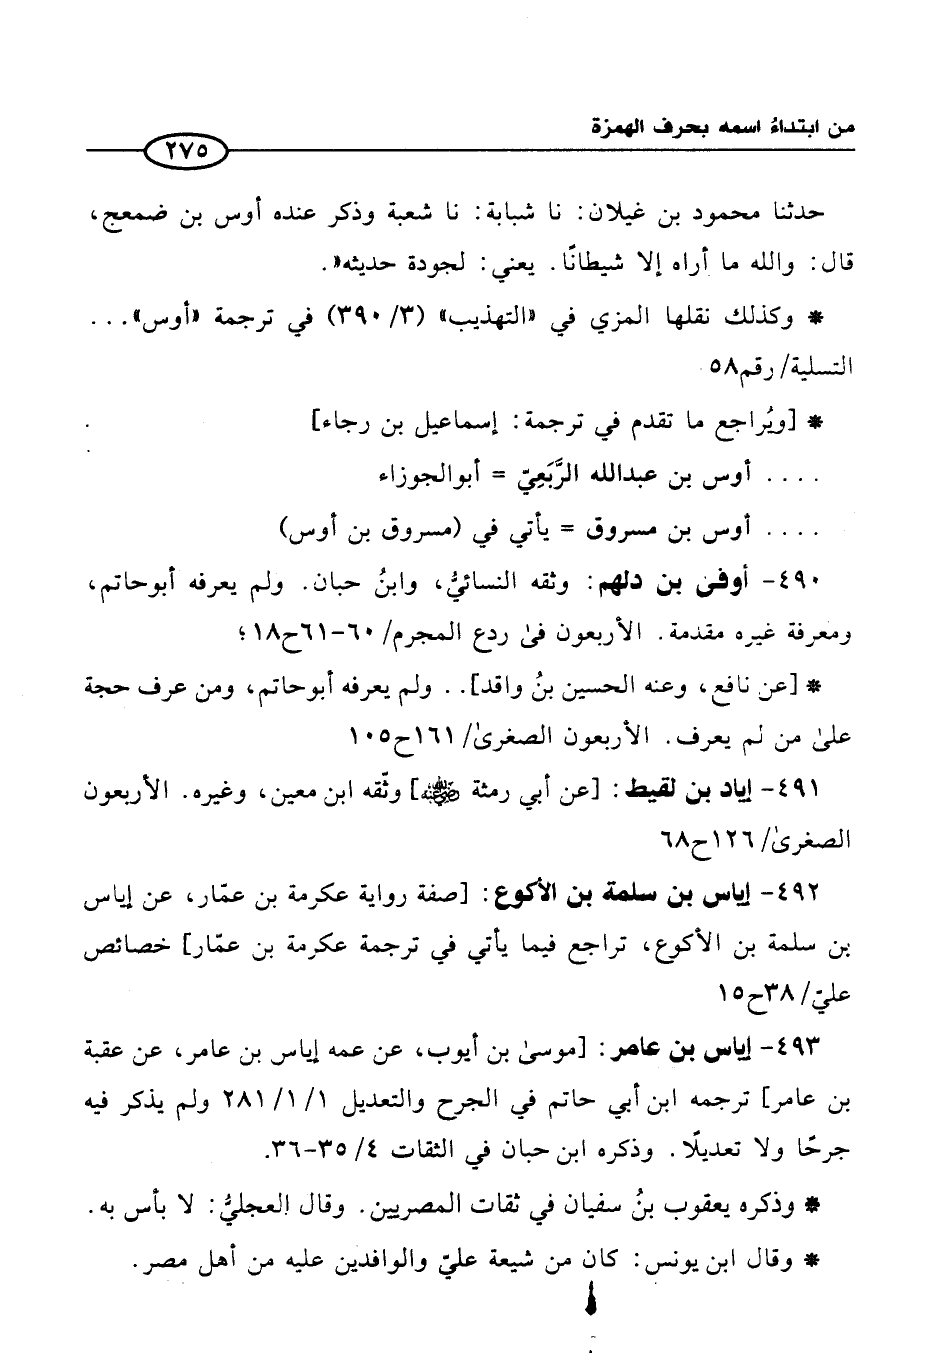 من ابتداءُ اسمه بحرف الهمزة
٢٧٥
حدثنا محمود بن غيلان: نا شبابة: نا شعبة وذكر عنده أوس بن ضمعج،
قال: والله ما أراه إلا شيطانًا. يعني: لجودة حديثه».
* وكذلك نقلها المزي في «التهذيب» (٣/ ٣٩٠) في ترجمة «أوس»...
التسلية/ رقم٥٨
* [ويُراجع ما تقدم في ترجمة: إسماعيل بن رجاء]
.... أوس بن عبدالله الرَّبَعِيّ = أبوالجوزاء
.... أوس بن مسروق = يأتي في (مسروق بن أوس)
٤٩٠- أوفى بن دلهم: وثقه النسائيُّ، وابنُ حبان. ولم يعرفه أبوحاتم،
ومعرفة غيره مقدمة. الأربعون فىٰ ردع المجرم/ ٦٠-٦١ح١٨؛
* [عن نافع، وعنه الحسين بنُ واقد].. ولم يعرفه أبوحاتم، ومن عرف حجة
علىٰ من لم يعرف. الأربعون الصغرىٰ/ ١٦١ح١٠٥
٤٩١- إياد بن لقيط: [عن أبي رمثة ﵁] وثّقه ابن معين، وغيره. الأربعون
الصغرىٰ/ ١٢٦ح٦٨
٤٩٢- إياس بن سلمة بن الأكوع: [صفة رواية عكرمة بن عمّار، عن إياس
بن سلمة بن الأكوع، تراجع فيما يأتي في ترجمة عكرمة بن عمّار] خصائص
عليّ/ ٣٨ح١٥
٤٩٣- إياس بن عامر: [موسىٰ بن أيوب، عن عمه إياس بن عامر، عن عقبة
بن عامر] ترجمه ابن أبي حاتم في الجرح والتعديل ١/ ١/ ٢٨١ ولم يذكر فيه
جرحًا ولا تعديلًا. وذكره ابن حبان في الثقات ٤/ ٣٥-٣٦.
* وذكره يعقوب بنُ سفيان في ثقات المصريين. وقال العجليُّ: لا بأس به.
* وقال ابن يونس: كان من شيعة عليّ والوافدين عليه من أهل مصر.